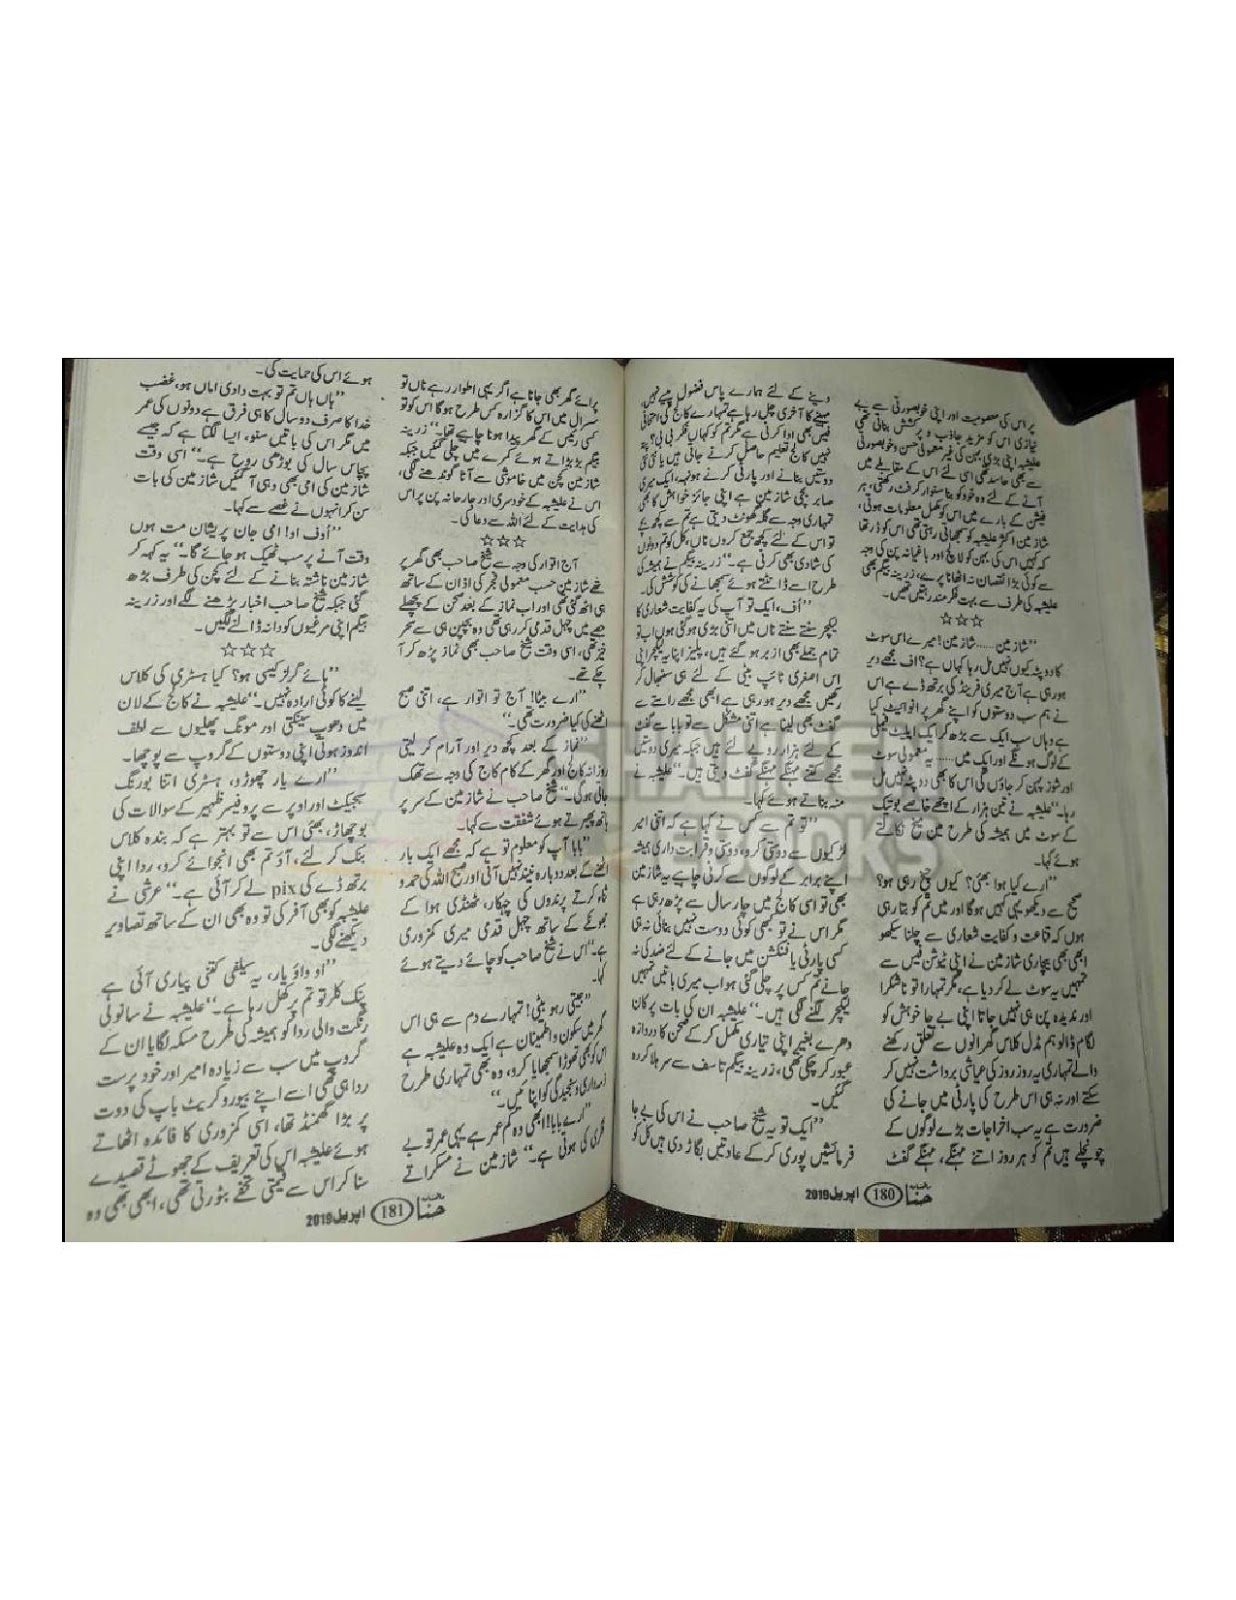 پر اس کی معصومیت اور اپنی خوبصورتی سے بے
نیازی اس کو مزید جاذب و پر کشش بناتی تھی
علیشبہ اپنی بڑی بہن کی غیر معمولی حسن و خوبصورتی
سے بھی حاسد تھی اسی لئے اس کے مقابلے میں
آنے کے لئے وہ خود کو بنا سنوار کر رکھتی، ہر
فیشن کے بارے میں اس کو مکمل معلومات ہوتی،
شازمین اکثر علیشبہ کو سمجھاتی رہتی تھی اس کو ڈر تھا
کہ کہیں اس کی بہن کو لالچ اور باغیانہ پن کی وجہ
سے کوئی بڑا نقصان نہ اٹھانا پڑے، زرینہ بیگم بھی
علیشبہ کی طرف سے بہت فکرمند رہتیں تھیں۔
☆☆☆
”شازمین......شازمین! میرے اس سوٹ
کا دوپٹہ کیوں نہیں مل رہا کہاں ہے؟ اف مجھے دیر
ہو رہی ہے آج میری فرینڈ کی برتھ ڈے ہے اس
نے ہم سب دوستوں کو اپنے گھر پر انوائیٹ کیا
ہے وہاں سب ایک سے بڑھ کر ایک ایلیٹ فیملی
کے لوگ ہونگے اور ایک میں...... یہ معمولی سوٹ
اور شوز پہن کر جاؤں گی اس کا بھی دوپٹہ نہیں مل
رہا۔“ علیشبہ نے تین ہزار کے اچھے خاصے بوتیک
کے سوٹ میں ہمیشہ کی طرح مین میخ نکالتے
ہوئے کہا۔
”ارے کیا ہوا بھئی؟ کیوں چیخ رہی ہو؟
صحیح سے دیکھو یہی کہیں ہوگا اور میں تم کو بتا رہی
ہوں کہ قناعت و کفایت شعاری سے چلنا سیکھو
ابھی بھی بیچاری شازمین نے اپنی ٹیوشن فیس سے
تمہیں یہ سوٹ لے کر دیا ہے، مگر تمہارا تو ناشکرا
اور ندیدہ پن ہی نہیں جاتا اپنی بے جا خواہش کو
لگام ڈالو ہم مڈل کلاس گھرانوں سے تعلق رکھنے
والے تمہاری یہ روز روز کی عیاشی برداشت نہیں کر
سکتے اور نہ ہی اس طرح کی پارٹی میں جانے کی
ضرورت ہے یہ سب اخراجات بڑے لوگوں کے
چونچلے ہیں تم کو ہر روز اتنے مہنگے، مہنگے گفٹ
دینے کے لئے ہمارے پاس فضول پیسے نہیں،
مہینے کا آخری چل رہا ہے تمہارے کالج کی امتحانی
فیس بھی ادا کرنی ہے مگر تم کو کہاں فکر بی بی؟ پتہ
نہیں کالج تعلیم حاصل کرنے جاتی ہیں یا نئی نئی
دوستیں بنانے اور پارٹی کرنے ہونہہ، ایک میری
صابر بچی شازمین ہے اپنی جائز خواہش کا بھی
تمہاری وجہ سے گلہ گھونٹ دیتی ہے تم سے کچھ بچے
تو اس کے لئے کچھ جمع کروں ناں، کل کو تم دونوں
کی شادی بھی کرنی ہے۔“ زرینہ بیگم نے ہمیشہ کی
طرح اسے ڈانٹتے ہوئے سمجھانے کی کوشش کی۔
”اُف، ایک تو آپ کی یہ کفایت شعاری کا
لیکچر سنتے سنتے ناں میں اتنی بڑی ہو گئی ہوں اب تو
تمام جملے بھی ازبر ہو گئے ہیں، پلیز اپنا یہ لیکچر اپنی
اس اصغری ٹائپ بیٹی کے لئے ہی سنبھال کر
رکھیں مجھے دیر ہو رہی ہے ابھی مجھے راستے سے
گفٹ بھی لینا ہے اتنی مشکل سے تو بابا سے گفٹ
کے لئے ہزار روپے لئے ہیں جبکہ میری دوستیں
مجھے کتنے مہنگے مہنگے گفٹ دیتی ہیں۔“ علیشبہ نے
منہ بناتے ہوئے کہا۔
”تو تم سے کس نے کہا ہے کہ اتنی امیر
لڑکیوں سے دوستی کرو، دوستی و قرابت داری ہمیشہ
اپنے برابر کے لوگوں سے کرنی چاہیے یہ شازمین
بھی تو اسی کالج میں چار سال سے پڑھ رہی ہے
مگر اس نے تو بھی کوئی دوست نہیں بنائی نہ ہی
کسی پارٹی یا فنکشن میں جانے کے لئے ضد کی نہ
جانے تم کس پر چلی گئی ہو اب میری باتیں تمہیں
لیکچر لگنے لگی ہیں۔“ علیشبہ ان کی بات پر کان
دھرے بغیر اپنی تیاری مکمل کر کے صحن کا دروازہ
عبور کر چکی تھی، زرینہ بیگم تاسف سے سر ہلا کر رہ
گئیں۔
”ایک تو یہ شیخ صاحب نے اس کی بے جا
فرمائشیں پوری کر کے عادتیں بگاڑ دی ہیں کل کو
حنا 180 اپریل 2019
پرائے گھر بھی جانا ہے اگر یہی اطوار رہے ناں تو
سسرال میں اس کا گزارہ کس طرح ہوگا اس کو تو
کسی رئیس کے گھر پیدا ہونا چاہیے تھا۔“ زرینہ
بیگم بڑبڑاتے ہوئے کمرے میں چلی گئیں جبکہ
شازمین کچن میں خاموشی سے آٹا گوندھنے لگی،
اس نے علیشبہ کے خودسری اور جارحانہ پن پر اس
کی ہدایت کے لئے اللہ سے دعا کی۔
☆☆☆
آج اتوار کی وجہ سے شیخ صاحب بھی گھر پر
تھے شازمین حسب معمول فجر کی اذان کے ساتھ
ہی اٹھ گئی تھی اور اب نماز کے بعد صحن کے پچھلے
حصے میں چہل قدمی کر رہی تھی وہ بچپن ہی سے سحر
خیز تھی، اسی وقت شیخ صاحب بھی نماز پڑھ کر آ
چکے تھے۔
”ارے بیٹا! آج تو اتوار ہے، اتنی صبح
اٹھنے کی کیا ضرورت تھی۔“
”نماز کے بعد کچھ دیر اور آرام کر لیتی
روزانہ کالج اور گھر کے کام کاج کی وجہ سے تھک
جاتی ہو گی۔“ شیخ صاحب نے شازمین کے سر پر
ہاتھ پھیرتے ہوئے شفقت سے کہا۔
”بابا آپ کو معلوم تو ہے کہ مجھے ایک بار
اٹھنے کے بعد دوبارہ نیند نہیں آتی اور صبح اللہ کی حمد و
ثناء کرتے پرندوں کی چہکار، ٹھنڈی ہوا کے
جھونکے کے ساتھ چہل قدمی میری کمزوری
ہے۔“ اس نے شیخ صاحب کو چائے دیتے ہوئے
کہا۔
”جیتی رہو بیٹی! تمہارے دم سے ہی اس
گھر میں سکون و اطمینان ہے ایک وہ علیشبہ ہے
اس کو بھی تھوڑا سمجھایا کرو، وہ بھی تمہاری طرح
ذمہ داری و سنجیدگی کو اپنا ئیں۔“
”ارے بابا! ابھی وہ کم عمر ہے یہی عمر تو بے
فکری کی ہوتی ہے۔“ شازمین نے مسکراتے
ہوئے اس کی حمایت کی۔
”ہاں ہاں تم تو بہت دادی اماں ہو، غضب
خدا کا صرف دو سال کا ہی فرق ہے دونوں کی عمر
میں مگر اس کی باتیں سنو، ایسا لگتا ہے کہ جیسے
پچاس سال کی بوڑھی روح ہے۔“ اسی وقت
شازمین کی امی بھی وہی آ گئیں شازمین کی بات
سن کر انہوں نے غصے سے کہا۔
”اُف او! امی جان پریشان مت ہوں
وقت آنے پر سب ٹھیک ہو جائے گا۔“ یہ کہہ کر
شازمین ناشتہ بنانے کے لئے کچن کی طرف بڑھ
گئی جبکہ شیخ صاحب اخبار پڑھنے لگے اور زرینہ
بیگم اپنی مرغیوں کو دانہ ڈالنے لگیں۔
☆☆☆
”ہائے گرلز کیسی ہو؟ کیا ہسٹری کی کلاس
لینے کا کوئی ارادہ نہیں۔“ علیشبہ نے کالج کے لان
میں دھوپ سینکتی اور مونگ پھلیوں سے لطف
اندوز ہوتی اپنی دوستوں کے گروپ سے پوچھا۔
”ارے یار چھوڑو، ہسٹری اتنا بورنگ
سبجیکٹ اور اوپر سے پروفیسر ظہیر کے سوالات کی
بوچھاڑ، بھئی اس سے تو بہتر ہے کہ بندہ کلاس
بنک کر لئے، آؤ تم بھی انجوائے کرو، ردا اپنی
برتھ ڈے کی pix لے کر آئی ہے۔“ عرشی نے
علیشبہ کو بھی آفر کی تو وہ بھی ان کے ساتھ تصاویر
دیکھنے لگی۔
”او واؤ یار، یہ سیلفی کتنی پیاری آئی ہے
پنک کلر تو تم پر کھل رہا ہے۔“ علیشبہ نے سانولی
رنگت والی ردا کو ہمیشہ کی طرح مسکہ لگایا ان کے
گروپ میں سب سے زیادہ امیر اور خود پرست
ردا ہی تھی اسے اپنے بیوروکریٹ باپ کی دولت
پر بڑا گھمنڈ تھا، اسی کمزوری کا فائدہ اٹھاتے
ہوئے علیشبہ اس کی تعریف کے جھوٹے قصیدے
سنا کر اس سے قیمتی تحفے بٹورتی تھی، ابھی بھی وہ
حنا 181 اپریل 2019